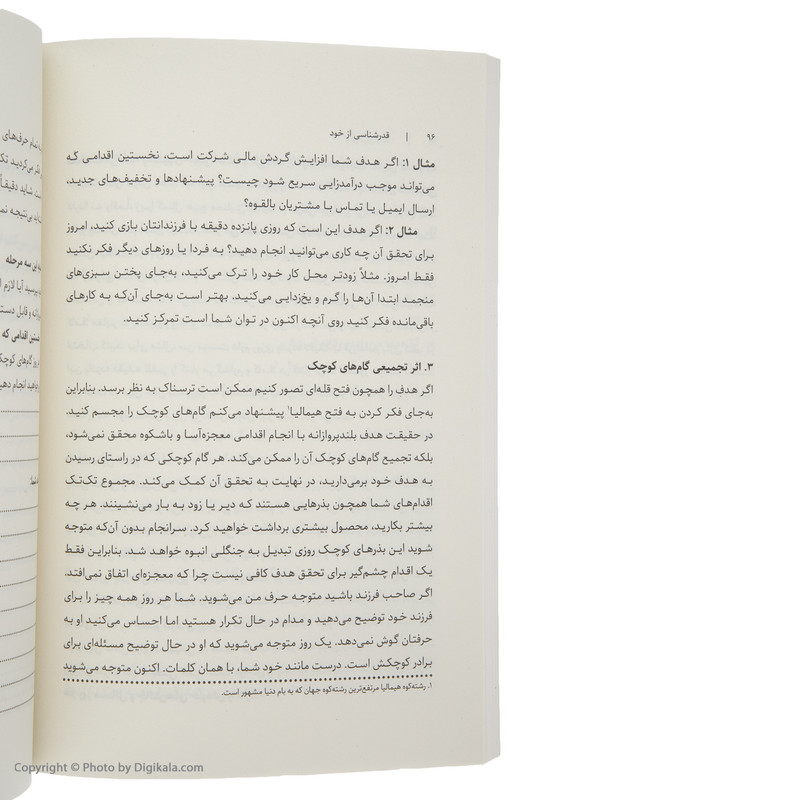 ۹۶ | قدرشناسی از خود
مثال ۱: اگر هدف شما افزایش گردش مالی شرکت است، نخستین اقدامی که
می‌تواند موجب درآمدزایی سریع شود چیست؟ پیشنهادها و تخفیف‌های جدید،
ارسال ایمیل یا تماس با مشتریان بالقوه؟
مثال ۲: اگر هدف این است که روزی پانزده دقیقه با فرزندانتان بازی کنید، امروز
برای تحقق آن چه کاری می‌توانید انجام دهید؟ به فردا یا روزهای دیگر فکر نکنید
فقط امروز. مثلاً زودتر محل کار خود را ترک می‌کنید، به‌جای پختن سبزی‌های
منجمد ابتدا آن‌ها را گرم و یخ‌زدایی می‌کنید. بهتر است به‌جای آن‌که به کارهای
باقی‌مانده فکر کنید روی آنچه اکنون در توان شما است تمرکز کنید.
۳. اثر تجمیعی گام‌های کوچک
اگر هدف را همچون فتح قله‌ای تصور کنیم ممکن است ترسناک به نظر برسد. بنابراین
به‌جای فکر کردن به فتح هیمالیا۱ پیشنهاد می‌کنم گام‌های کوچک را مجسم کنید.
در حقیقت هدف بلندپروازانه با انجام اقدامی معجزه‌آسا و باشکوه محقق نمی‌شود،
بلکه تجمیع گام‌های کوچک آن را ممکن می‌کند. هر گام کوچکی که در راستای رسیدن
به هدف خود برمی‌دارید، در نهایت به تحقق آن کمک می‌کند. مجموع تک‌تک
اقدام‌های شما همچون بذرهایی هستند که دیر یا زود به بار می‌نشینند. هر چه
بیشتر بکارید، محصول بیشتری برداشت خواهید کرد. سرانجام بدون آن‌که متوجه
شوید این بذرهای کوچک روزی تبدیل به جنگلی انبوه خواهد شد. بنابراین فقط
یک اقدام چشم‌گیر برای تحقق هدف کافی نیست چرا که معجزه‌ای اتفاق نمی‌افتد.
اگر صاحب فرزند باشید متوجه حرف من می‌شوید. شما هر روز همه چیز را برای
فرزند خود توضیح می‌دهید و مدام در حال تکرار هستید اما احساس می‌کنید او به
حرفتان گوش نمی‌دهد. یک روز متوجه می‌شوید که او در حال توضیح مسئله‌ای برای
برادر کوچکش است. درست مانند خود شما، با همان کلمات. اکنون متوجه می‌شوید
۱. رشته‌کوه هیمالیا مرتفع‌ترین رشته‌کوه جهان که به بام دنیا مشهور است.
Copyright © Photo by Digikala.com